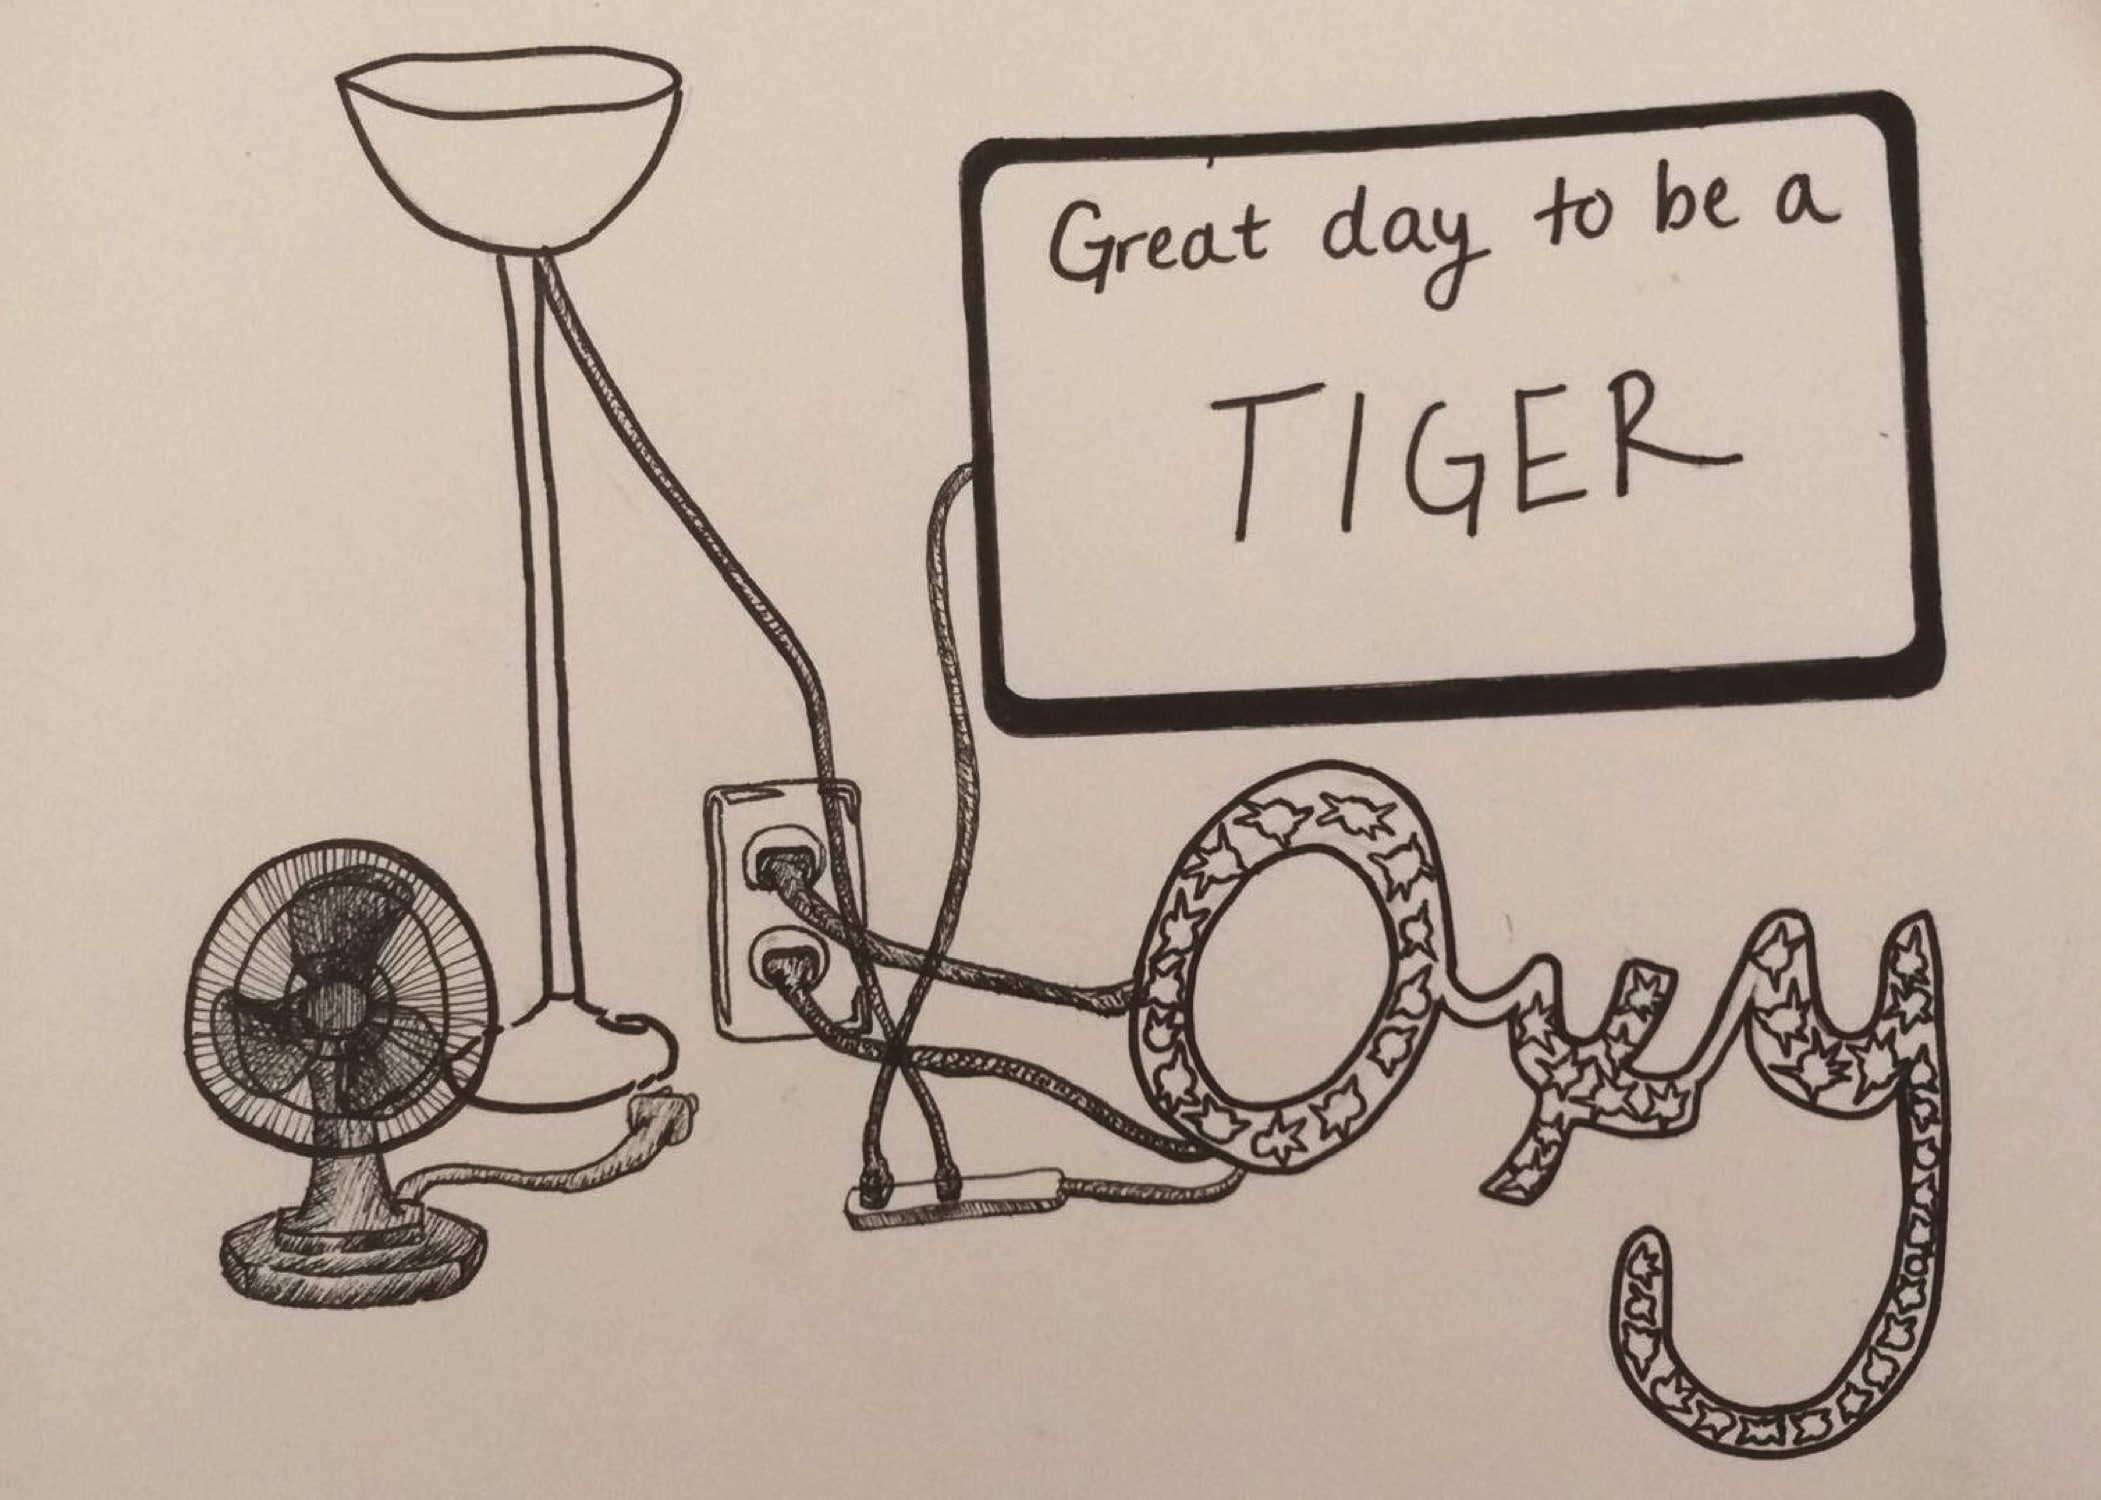 Great day to be a
TIGER
Oxy